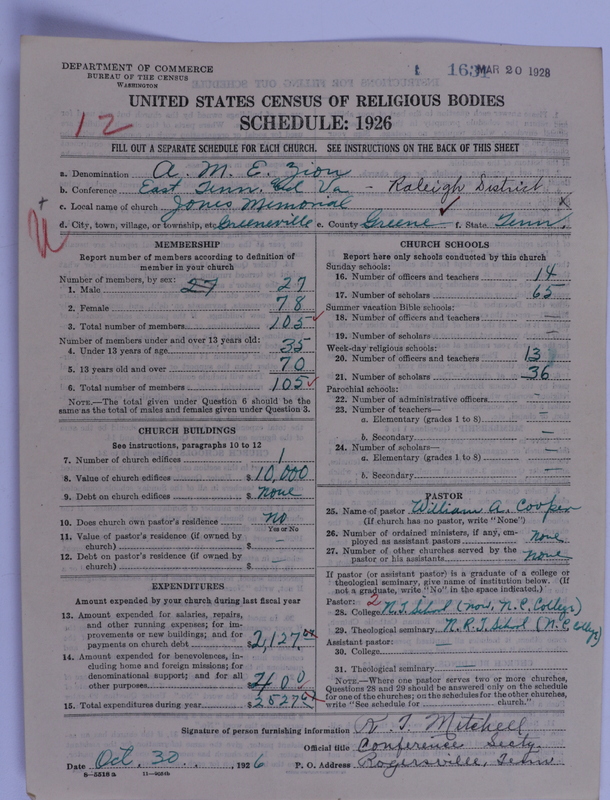 DEPARTMENT OF COMMERCE
BUREAU OF THE CENSUS
WASHINGTON
1631 MAR 20 1928
UNITED STATES CENSUS OF RELIGIOUS BODIES
SCHEDULE: 1926
12
FILL OUT A SEPARATE SCHEDULE FOR EACH CHURCH. SEE INSTRUCTIONS ON THE BACK OF THIS SHEET
a. Denomination A. M. E. Zion
b. Conference East Tenn. and Va - Raleigh District
c. Local name of church Jones Memorial
d. City, town, village, or township, etc Greeneville e. County Greene f. State Tenn.
MEMBERSHIP
Report number of members according to definition of
member in your church
Number of members, by sex:
1. Male 27 27
2. Female 78
3. Total number of members 105
Number of members under and over 13 years old:
4. Under 13 years of age 35
5. 13 years old and over 70
6. Total number of members 105
NOTE.—The total given under Question 6 should be the
same as the total of males and females given under Question 3.
CHURCH BUILDINGS
See instructions, paragraphs 10 to 12
7. Number of church edifices 1
8. Value of church edifices $10,000
9. Debt on church edifices $ none
10. Does church own pastor's residence no
Yes or No
11. Value of pastor's residence (if owned by
church) $ —
12. Debt on pastor's residence (if owned by
church) $ —
EXPENDITURES
Amount expended by your church during last fiscal year
13. Amount expended for salaries, repairs,
and other running expenses; for im-
provements or new buildings; and for
payments on church debt $2,127.
14. Amount expended for benevolences, in-
cluding home and foreign missions; for
denominational support; and for all
other purposes 400
15. Total expenditures during year $2527
CHURCH SCHOOLS
Report here only schools conducted by this church
Sunday schools:
16. Number of officers and teachers 14
17. Number of scholars 65
Summer vacation Bible schools:
18. Number of officers and teachers —
19. Number of scholars —
Week-day religious schools:
20. Number of officers and teachers 13
21. Number of scholars 36
Parochial schools:
22. Number of administrative officers —
23. Number of teachers—
a. Elementary (grades 1 to 8) —
b. Secondary —
24. Number of scholars—
a. Elementary (grades 1 to 8) —
b. Secondary —
PASTOR
25. Name of pastor William A. Cooper
(If church has no pastor, write "None")
26. Number of ordained ministers, if any, em-
ployed as assistant pastors none
27. Number of other churches served by the
pastor or his assistants none
If pastor (or assistant pastor) is a graduate of a college or
theological seminary, give name of institution below. (If
not a graduate, write "No" in the space indicated.)
Pastor: 2
28. College N. T. School (now, N. C. College)
29. Theological seminary N. R. T. School (N. C. College)
Assistant pastor:
30. College —
31. Theological seminary —
NOTE.—Where one pastor serves two or more churches,
Questions 28 and 29 should be answered only on the schedule
for one of the churches; on the schedules for the other churches,
write "See schedule for church."
Signature of person furnishing information R. T. Mitchell
Official title Conference Secty.
Date Oct. 30, 1926 P. O. Address Rogersville, Tenn
8-5318a